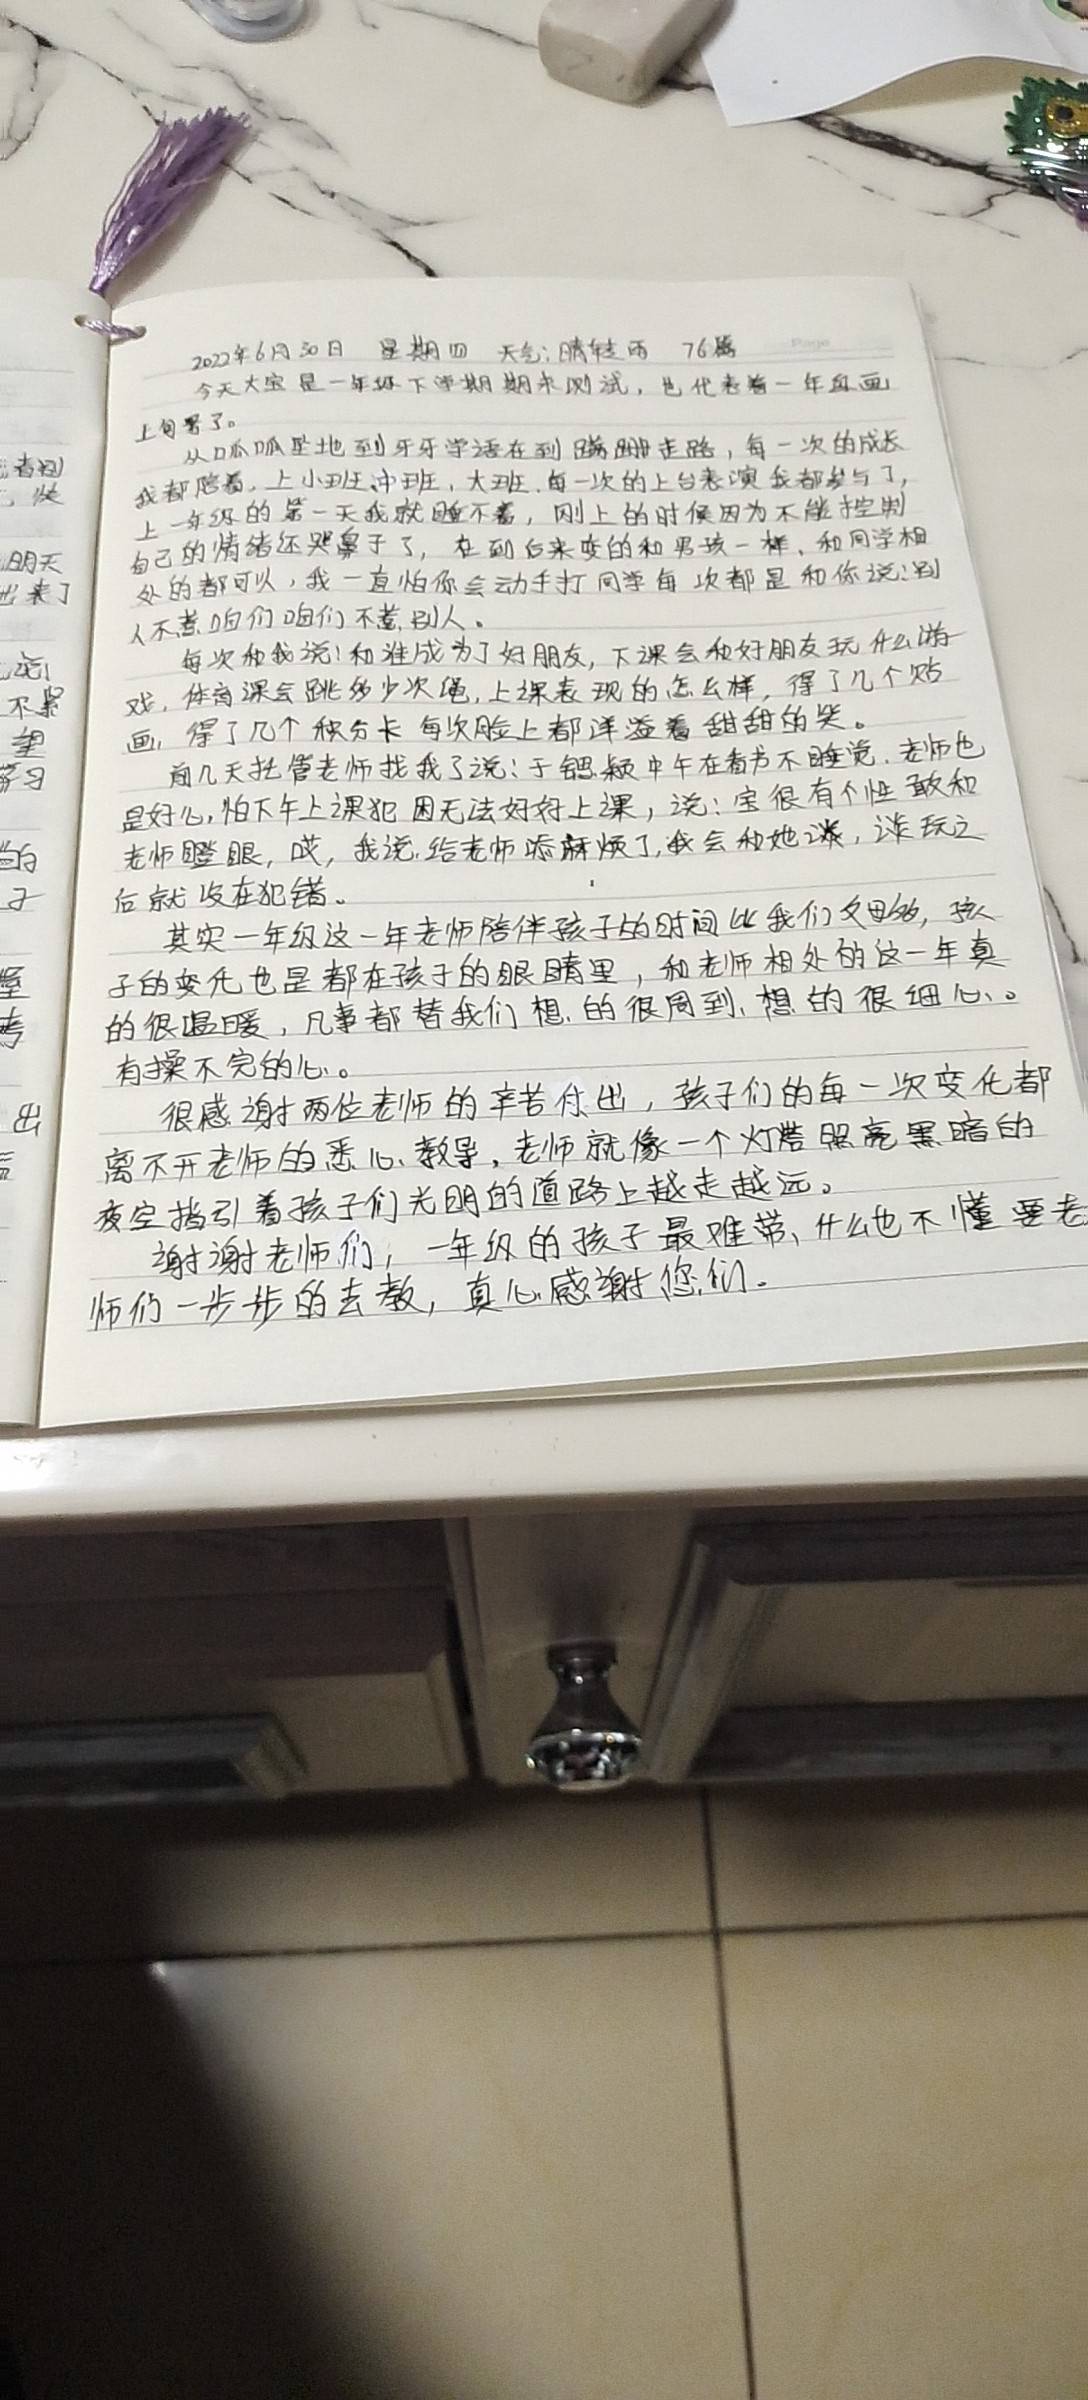 2022年6月30日 星期四 天气:晴转雨 76篇
今天大宝是一年级下学期期末测试，也代表着一年级画
上句号了。
从呱呱坠地到牙牙学语在到蹒跚走路，每一次的成长
我都陪着。上小班、中班，大班.每一次的上台表演我都参与了，
上一年级的第一天我就睡不着，刚上的时候因为不能控制
自己的情绪还哭鼻子了，在到后来变的和男孩一样、和同学相
处的都可以，我一直怕你会动手打同学每次都是和你说:别
人不惹咱们咱们不惹别人。
每次和我说!和谁成为了好朋友，下课会和好朋友玩什么游
戏，体育课会跳多少次绳，上课表现的怎么样，得了几个贴
画，得了几个积分卡 每次脸上都洋溢着甜甜的笑。
前几天托管老师找我了说:于锶颖中午在看书不睡觉.老师也
是好心，怕下午上课犯困无法好好上课，说:宝很有个性敢和
老师瞪眼，哎，我说，给老师添麻烦了，我会和她谈，谈玩之
后就没在犯错。
其实一年级这一年老师陪伴孩子的时间比我们父母多，孩
子的变化也是都在孩子的眼睛里，和老师相处的这一年真
的很温暖，凡事都替我们想的很周到、想的很细心、。
有操不完的心。
很感谢两位老师的辛苦付出，孩子们的每一次变化都
离不开老师的悉心教导，老师就像一个灯塔照亮黑暗的
夜空指引着孩子们光明的道路上越走越远。
谢谢老师们，一年级的孩子最难带、什么也不懂要老
师们一步步的去教，真心感谢您们.
者
快
明天
出来了
说
不累
望
学习
的
子
出